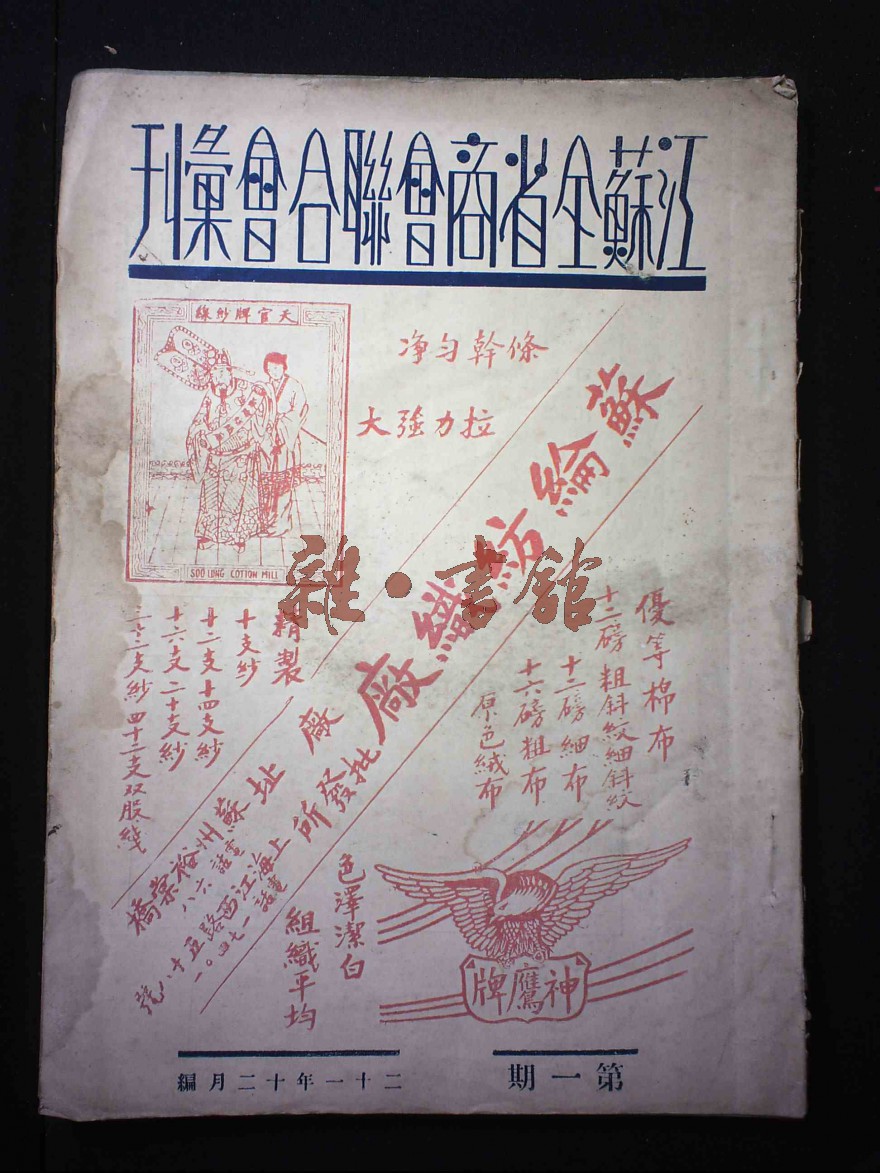 江蘇全省商會聯合會彙刊
天官牌紗線
SOO LUNG COTTON MILL
條幹勻淨
拉力強大
蘇綸紡織廠
優等棉布
十二磅粗斜紋細斜紋
十二磅細布
十六磅粗布
原色絨布
精製
十支紗
十二支十四支紗
十六支二十支紗
三十二支紗四十二支双股綫
廠址蘇州裕棠橋
電話六八八
批發所上海江西路五十八號
電話一七四〇一
色澤潔白
組織平均
神鷹牌
雜·書館
第一期
二十一年十二月編